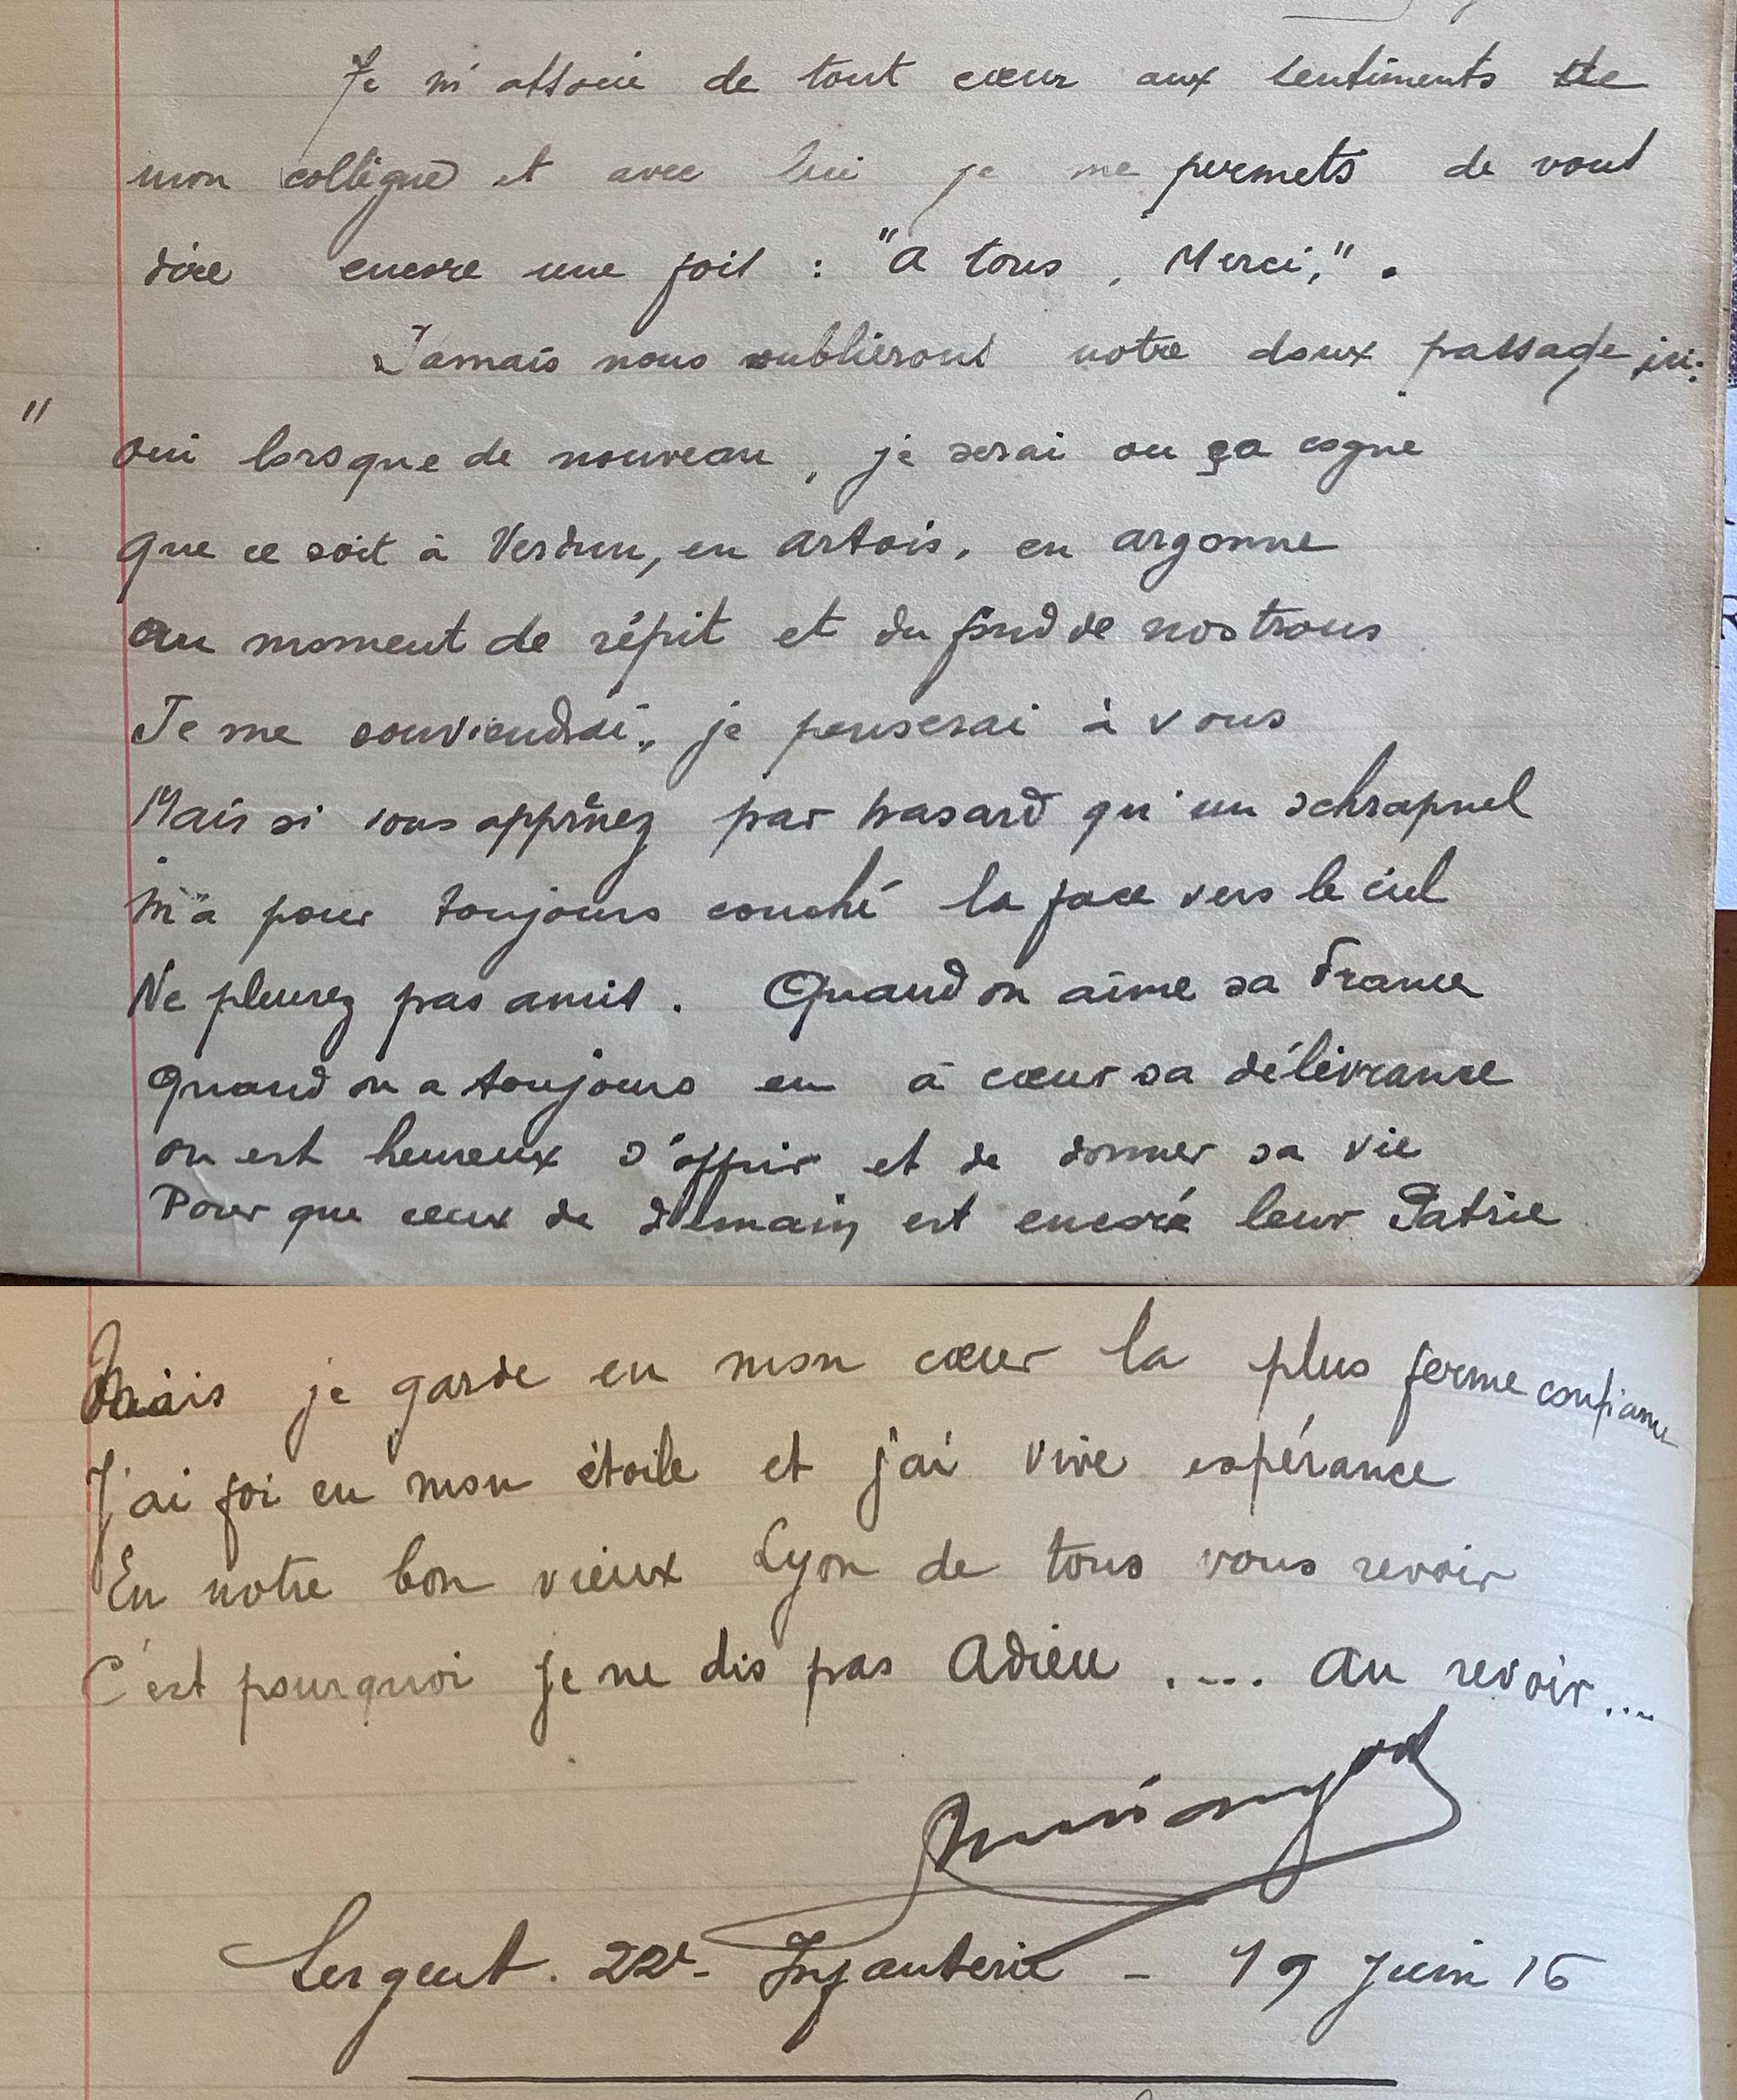 Je m'associe de tout cœur aux sentiments de
mon collègue et avec lui je me permets de vous
dire encore une fois : "A tous, Merci," .
Jamais nous oublierons notre doux passage ici:
" oui lorsque de nouveau, je serai ou ça cogne
que ce soit à Verdun, en Artois, en argonne
au moment de répit et du fond de nos trous
Je me souviendrai, je penserai à vous
Mais si vous apprînez par hasard qu'un schrapnel
m'a pour toujours couché la face vers le ciel
Ne pleurez pas amis. Quand on aime sa France
Quand on a toujours eu à cœur sa délivrance
on est heureux d'offrir et de donner sa vie
Pour que ceux de demain est encore leur Patrie
Mais je garde en mon cœur la plus ferme confiance
J'ai foi en mon étoile et j'ai vive espérance
En notre bon vieux Lyon de tous vous revoir
C'est pourquoi je ne dis pas Adieu .... au revoir....
Sergent. 22e - Infanterie - 19 Juin 16